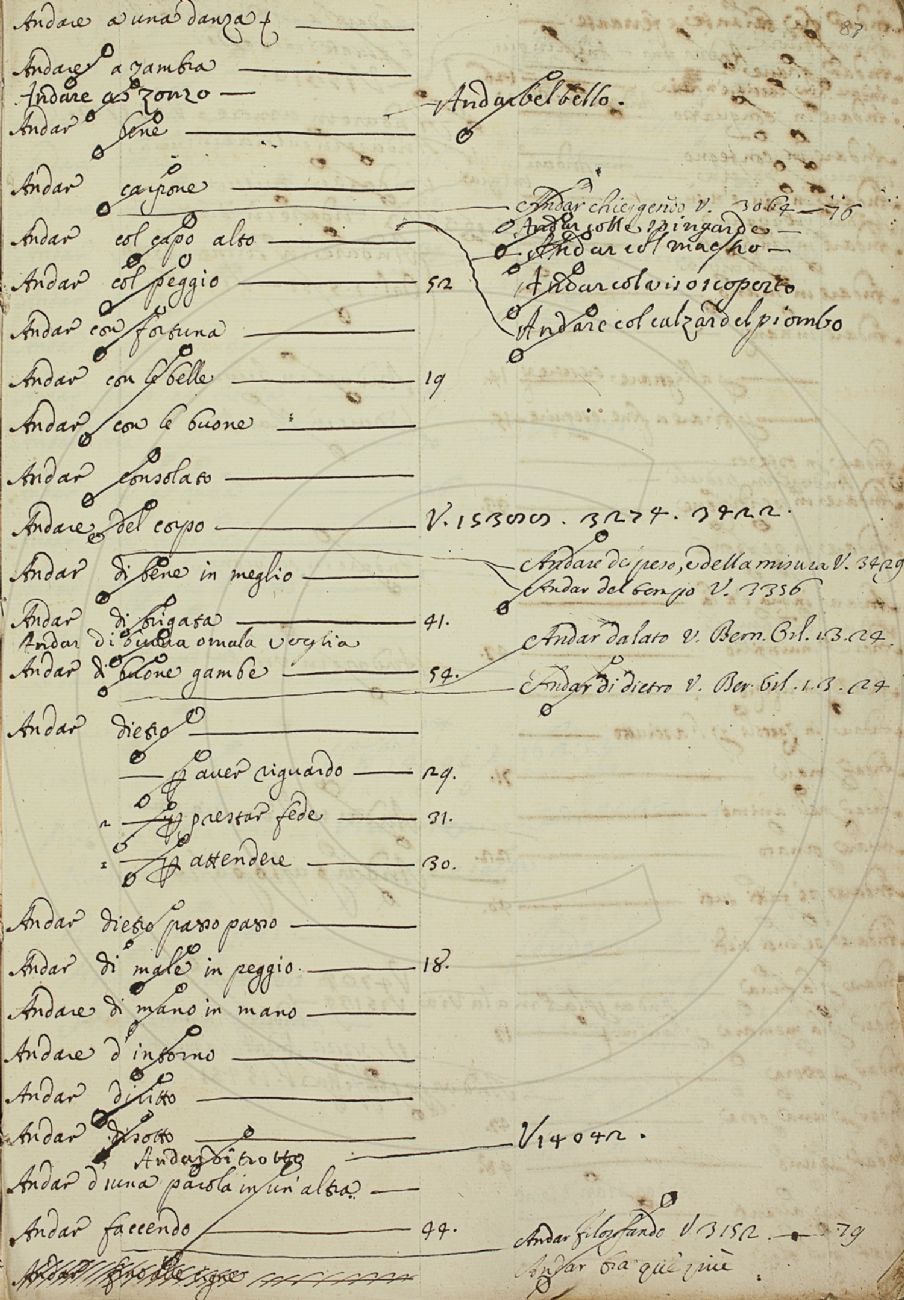 87
Andare a una danza
Andare a zambra
Andare a zonzo
Andar bel bello.
Andar bene
Andar carpone
Andar chiergendo V. 3064 — 76
Andar colle spingarde
Andar col capo alto
Andar col maestro
Andar col peggio 52
Andar col viso scoperto
Andar con fortuna
Andare col calzar del piombo
Andar con le belle 19
Andar con le buone
Andar consolato
Andare del corpo V. 3274. 3422.
Andare di peso, e della misura V. 3429
Andar di bene in meglio
Andar del tempo V. 3356
Andar di brigata 41.
Andar di buona o mala voglia
Andar dalato V. Bern. Orl. 1.3.24
Andar di buone gambe 54.
Andar di dietro V. Ber. Orl. 1.3.24
Andar dietro
— aver riguardo — 29.
— prestar fede — 31.
— attendere — 30.
Andar dietro passo passo
Andar di male in peggio. 18.
Andare di mano in mano
Andare d'intorno
Andar diritto
Andar di sotto V 14042.
Andar di trotto
Andar d'una parola in un'altra
Andar faccendo 44.
Andar filosofando V 3152 — 79
Andar fra què più
Andar